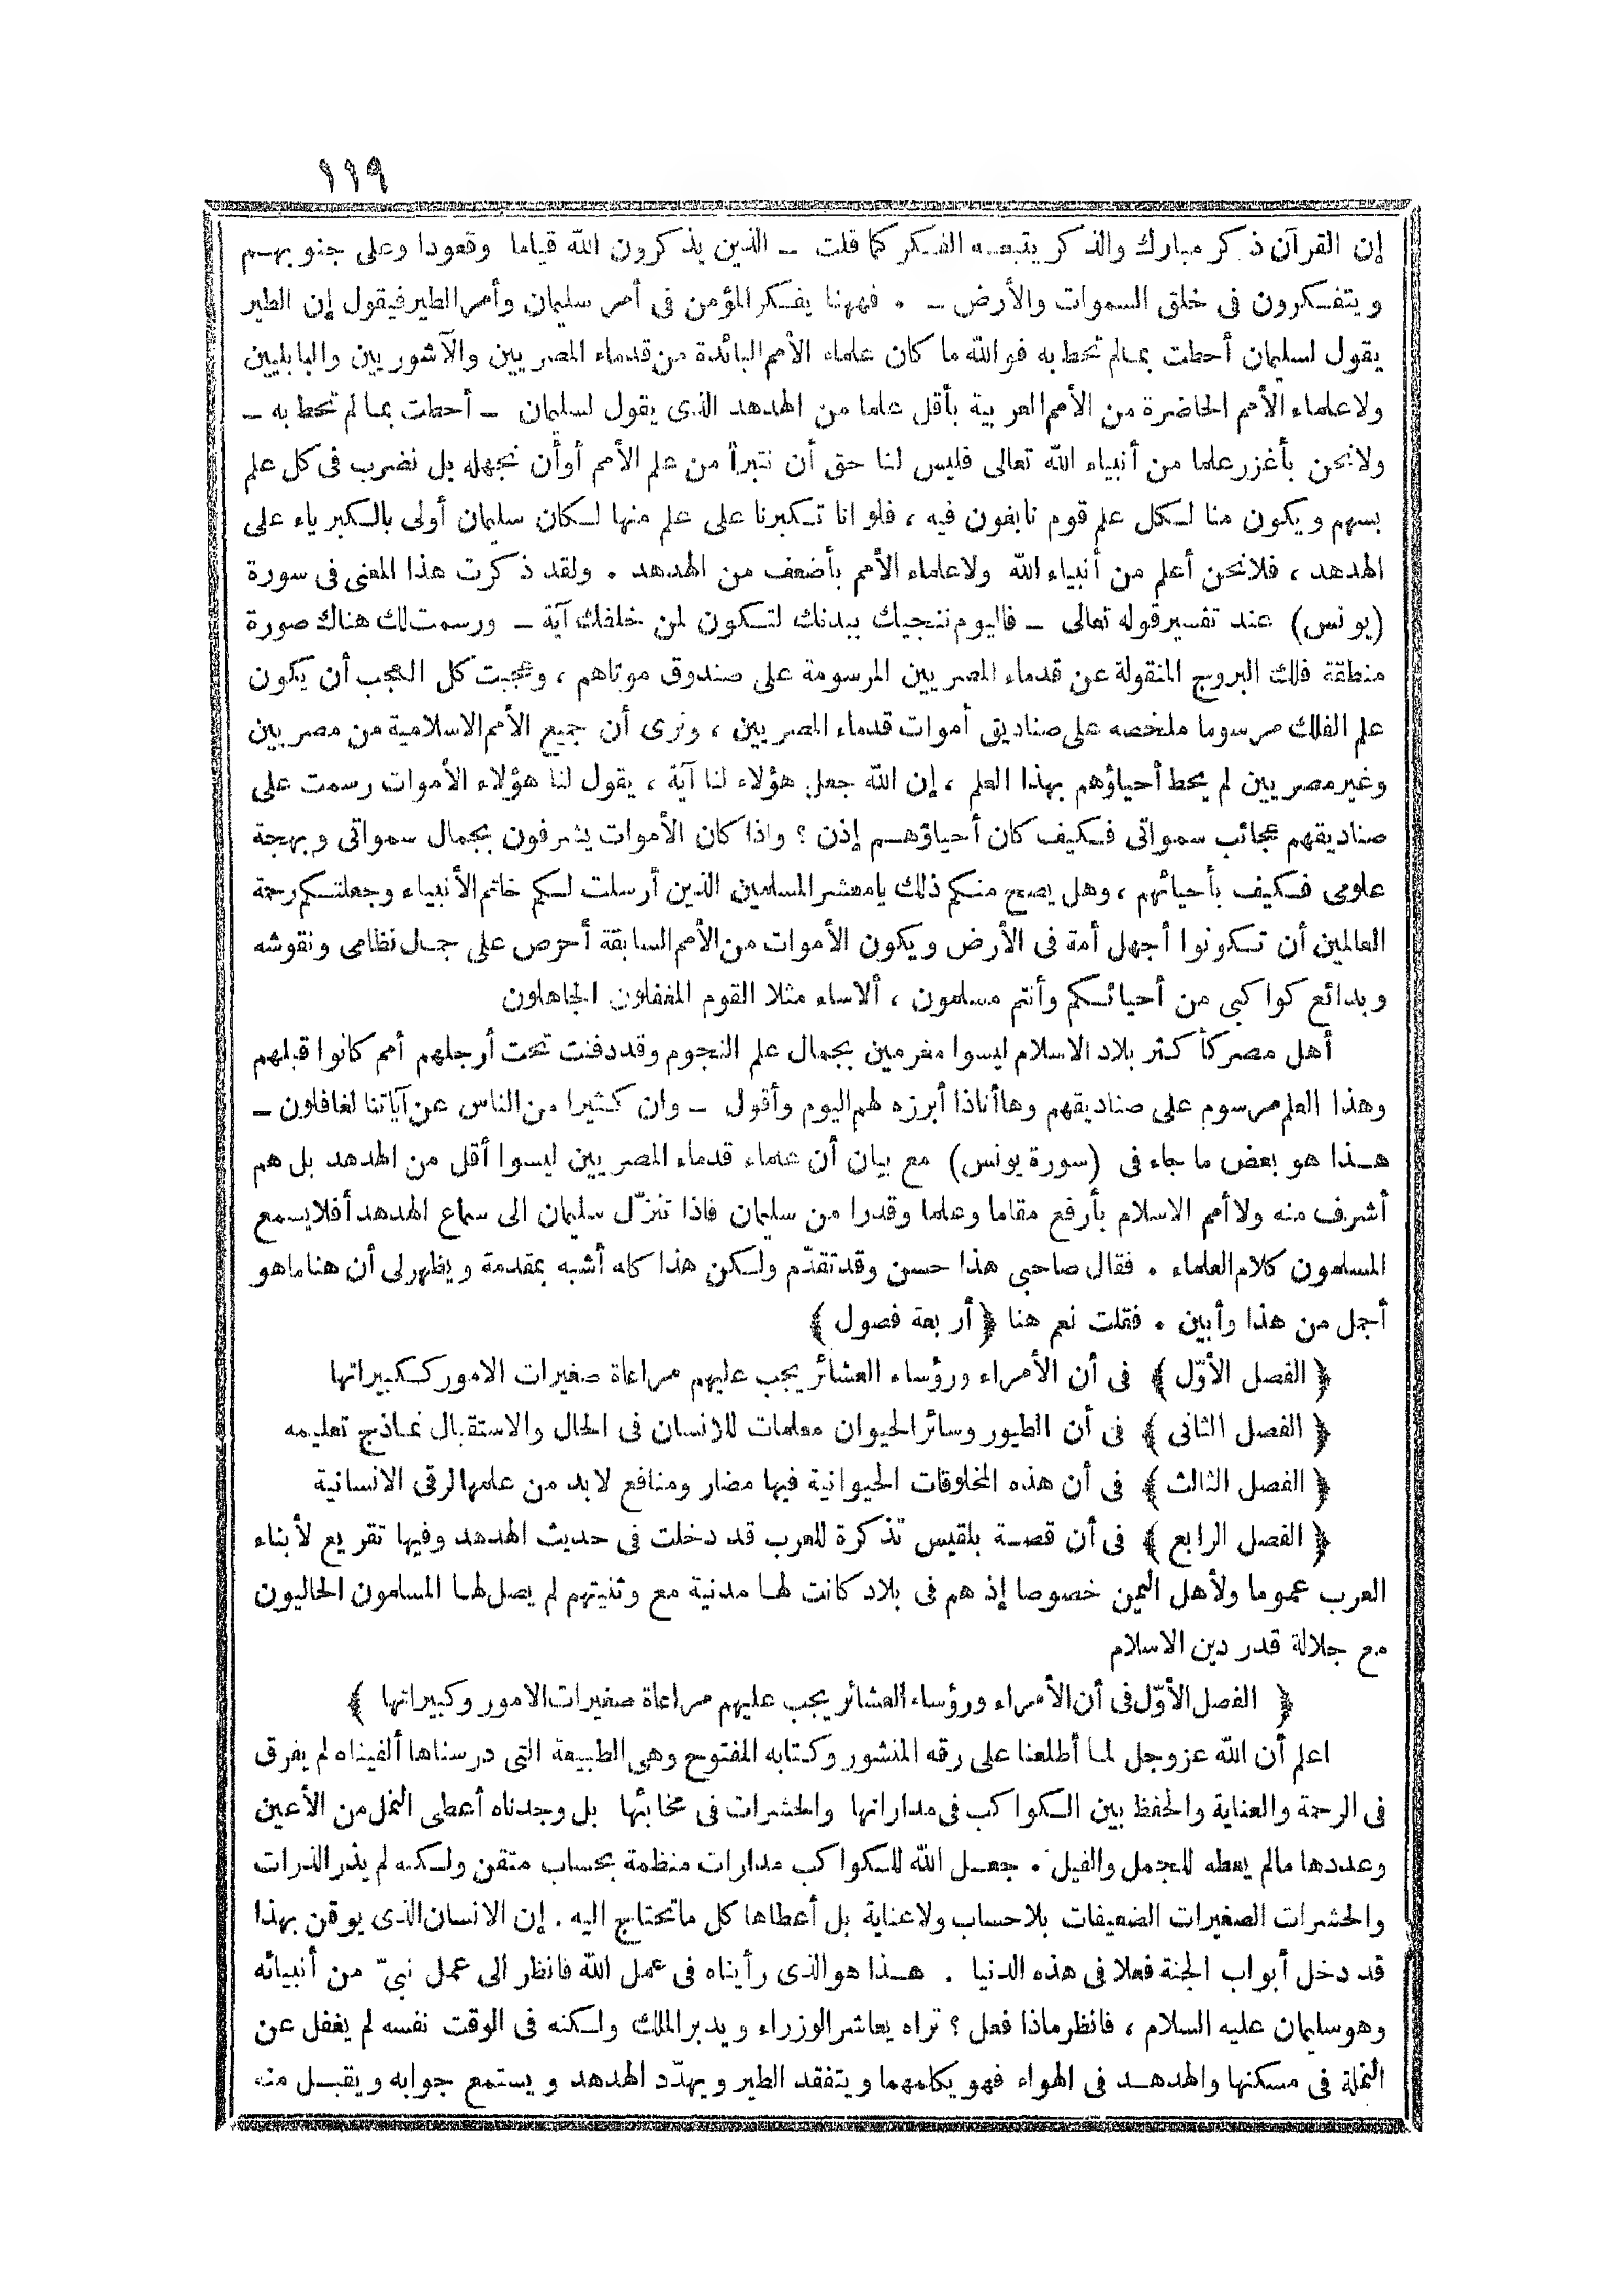 ١١٩
إن القرآن ذكر مبارك والذكر يتبعه الفكر كما قلت ــ الذين يذكرون الله قياما وقعودا وعلى جنوبهم
ويتفكرون فى خلق السموات والأرض ــ . فههنا يفكر المؤمن فى أمر سليمان وأمر الطير فيقول إن الطير
يقول لسليمان أحطت بما لم تحط به فوالله ما كان علماء الأمم البائدة من قدماء المصريين والآشوريين والبابليين
ولا علماء الأمم الحاضرة من الأمم العربية بأقل علما من الهدهد الذى يقول لسليمان ــ أحطت بما لم تحط به ــ
ولا نحن بأغزر علما من أنبياء الله تعالى فليس لنا حق أن نتبرأ من علم الأمم أو أن نجهله بل نضرب فى كل علم
بسهم ويكون منا لكل علم قوم نابغون فيه ، فلو انا تكبرنا على علم منها لكان سليمان أولى بالكبرياء على
الهدهد ، فلا نحن أعلم من أنبياء الله ولا علماء الأمم بأضعف من الهدهد . ولقد ذكرت هذا المعنى فى سورة
(يونس) عند تفسير قوله تعالى ــ فاليوم ننجيك ببدنك لتكون لمن خلفك آية ــ ورسمت لك هناك صورة
منطقة فلك البروج المنقولة عن قدماء المصريين المرسومة على صندوق موتاهم ، وعجبت كل العجب أن يكون
علم الفلك مرسوما ملخصه على صناديق أموات قدماء المصريين ، ونرى أن جميع الأمم الاسلامية من مصريين
وغير مصريين لم يحط أحياؤهم بهذا العلم ، إن الله جعل هؤلاء لنا آية ، يقول لنا هؤلاء الأموات رسمت على
صناديقهم عجائب سمواتى فكيف كان أحياؤهم إذن ؟ واذا كان الأموات يشرفون بجمال سمواتى وبهجة
علومى فكيف بأحيائهم ، وهل يصح منكم ذلك يا معشر المسلمين الذين أرسلت لكم خاتم الأنبياء وجعلتكم رحمة
العالمين أن تكونوا أجهل أمة فى الأرض ويكون الأموات من الأمم السابقة أحرص على جمال نظامى ونقوشه
وبدائع كواكبى من أحيائكم وأنتم مسلمون ، ألا ساء مثلا القوم المغفلون الجاهلون
أهل مصر كأكثر بلاد الاسلام ليسوا مغرمين بجمال علم النجوم وقد دفنت تحت أرجلهم أمم كانوا قبلهم
وهذا العلم مرسوم على صناديقهم وها أناذا أبرزه لهم اليوم وأقول ــ وان كثيرا من الناس عن آياتنا لغافلون ــ
هذا هو بعض ما جاء فى (سورة يونس) مع بيان أن علماء قدماء المصريين ليسوا أقل من الهدهد بل هم
أشرف منه ولا أمم الاسلام بأرفع مقاما وعلما وقدرا من سليمان فاذا تنزّل سليمان الى سماع الهدهد أفلا يسمع
المسلمون كلام العلماء . فقال صاحبى هذا حسن وقد تقدّم ولكن هذا كله أشبه بمقدمة ويظهر لى أن هنا ما هو
أجمل من هذا وأبين . فقلت نعم هنا ﴿ أربعة فصول ﴾
﴿ الفصل الأوّل ﴾ فى أن الأمراء ورؤساء العشائر يجب عليهم مراعاة صغيرات الامور ككبيراتها
﴿ الفصل الثانى ﴾ فى أن الطيور وسائر الحيوان معلمات للانسان فى الحال والاستقبال نماذج تعليمه
﴿ الفصل الثالث ﴾ فى أن هذه المخلوقات الحيوانية فيها مضار ومنافع لابد من علمها لرقى الانسانية
﴿ الفصل الرابع ﴾ فى أن قصة بلقيس تذكرة للعرب قد دخلت فى حديث الهدهد وفيها تقريع لأبناء
العرب عموما ولأهل اليمن خصوصا إذ هم فى بلاد كانت لها مدنية مع وثنيتهم لم يصل لها المسلمون الحاليون
مع جلالة قدر دين الاسلام
﴿ الفصل الأوّل فى أن الأمراء ورؤساء العشائر يجب عليهم مراعاة صغيرات الامور وكبيراتها ﴾
اعلم أن الله عزوجل لما أطلعنا على رقه المنشور وكتابه المفتوح وهى الطبيعة التى درسناها ألفيناه لم يفرق
فى الرحمة والعناية والحفظ بين الكواكب فى مداراتها والحشرات فى مخابئها بل وجدناه أعطى النمل من الأعين
وعددها مالم يعطه للجمل والفيل . جعل الله للكواكب مدارات منظمة بحساب متقن ولكنه لم يذر الذرات
والحشرات الصغيرات الضعيفات بلا حساب ولا عناية بل أعطاها كل ما تحتاج اليه . إن الانسان الذى يوقن بهذا
قد دخل أبواب الجنة فعلا فى هذه الدنيا . هذا هو الذى رأيناه فى عمل الله فانظر الى عمل نبىّ من أنبيائه
وهو سليمان عليه السلام ، فانظر ماذا فعل ؟ تراه يعاشر الوزراء ويدبر الملك ولكنه فى الوقت نفسه لم يغفل عن
النملة فى مسكنها والهدهد فى الهواء فهو يكلمهما ويتفقد الطير ويهدّد الهدهد ويستمع جوابه ويقبل منه